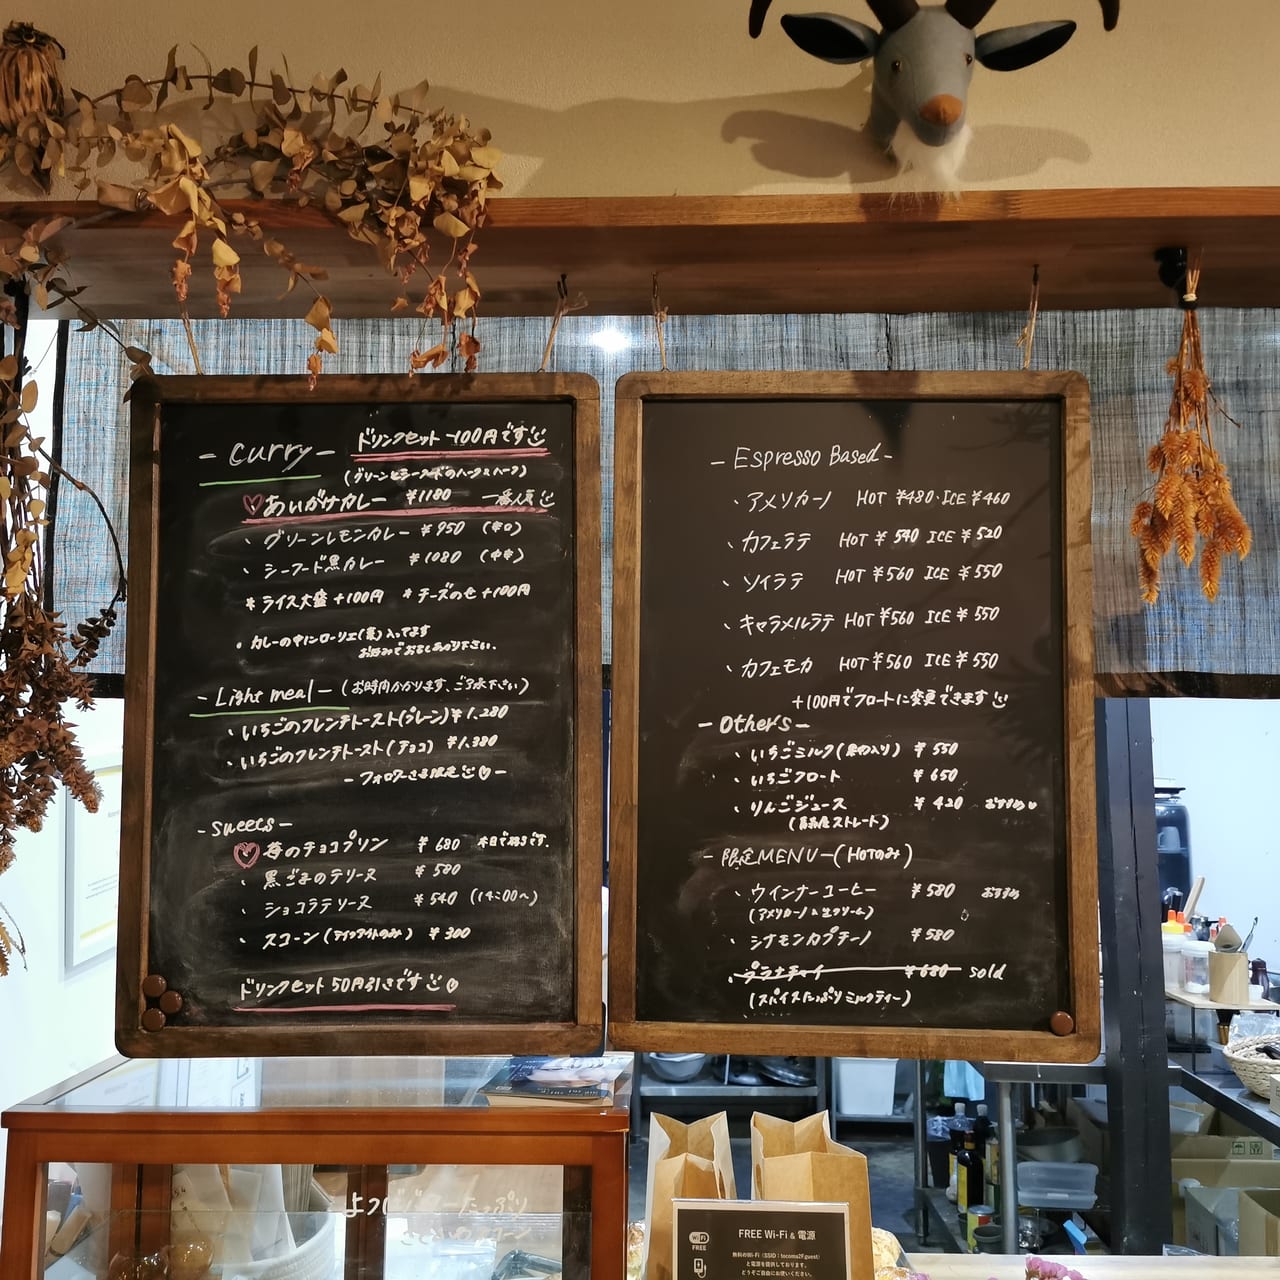 - Curry -
ドリンクセット -100円です
(グリーンとシーフードのハーフ&ハーフ)
あいがけカレー ¥1180 一番人気
・グリーンレモンカレー ¥950 (辛口)
・シーフード黒カレー ¥1080 (中辛)
* ライス大盛 +100円 * チーズのせ +100円
・カレーの中にローリエ(葉)入ってます
お好みでおめしあがり下さい.
- Light meal - (お時間かかります、ご了承下さい)
・いちごのフレンチトースト(プレーン) ¥1.280
・いちごのフレンチトースト(チョコ) ¥1.380
- フォロワーさま限定 -
- sweets -
苺のチョコプリン ¥680 本日で終了です.
・黒ごまのテリーヌ ¥580
・ショコラテリーヌ ¥540 (14:00〜)
・スコーン(テイクアウトのみ) ¥300
ドリンクセット 50円引きです
- Espresso Based -
・アメリカーノ HOT ¥480・ICE ¥460
・カフェラテ HOT ¥540 ICE ¥520
・ソイラテ HOT ¥560 ICE ¥550
・キャラメルラテ HOT ¥560 ICE ¥550
・カフェモカ HOT ¥560 ICE ¥550
+100円でフロートに変更できます
- Others -
・いちごミルク(果肉入り) ¥550
・いちごフロート ¥650
・りんごジュース ¥420 おすすめ
(青森産ストレート)
- 限定MENU - (HOTのみ)
・ウインナーコーヒー ¥580 おすすめ
(アメリカーノ&生クリーム)
・シナモンカプチーノ ¥580
・プラナチャイ ¥680 sold
(スパイスたっぷりミルクティー)
Wi-Fi
FREE
FREE Wi-Fi & 電源
無料のWi-Fi (SSID : tocoma2Fguest)
と電源を提供しております。
どうぞご自由にお使いください。